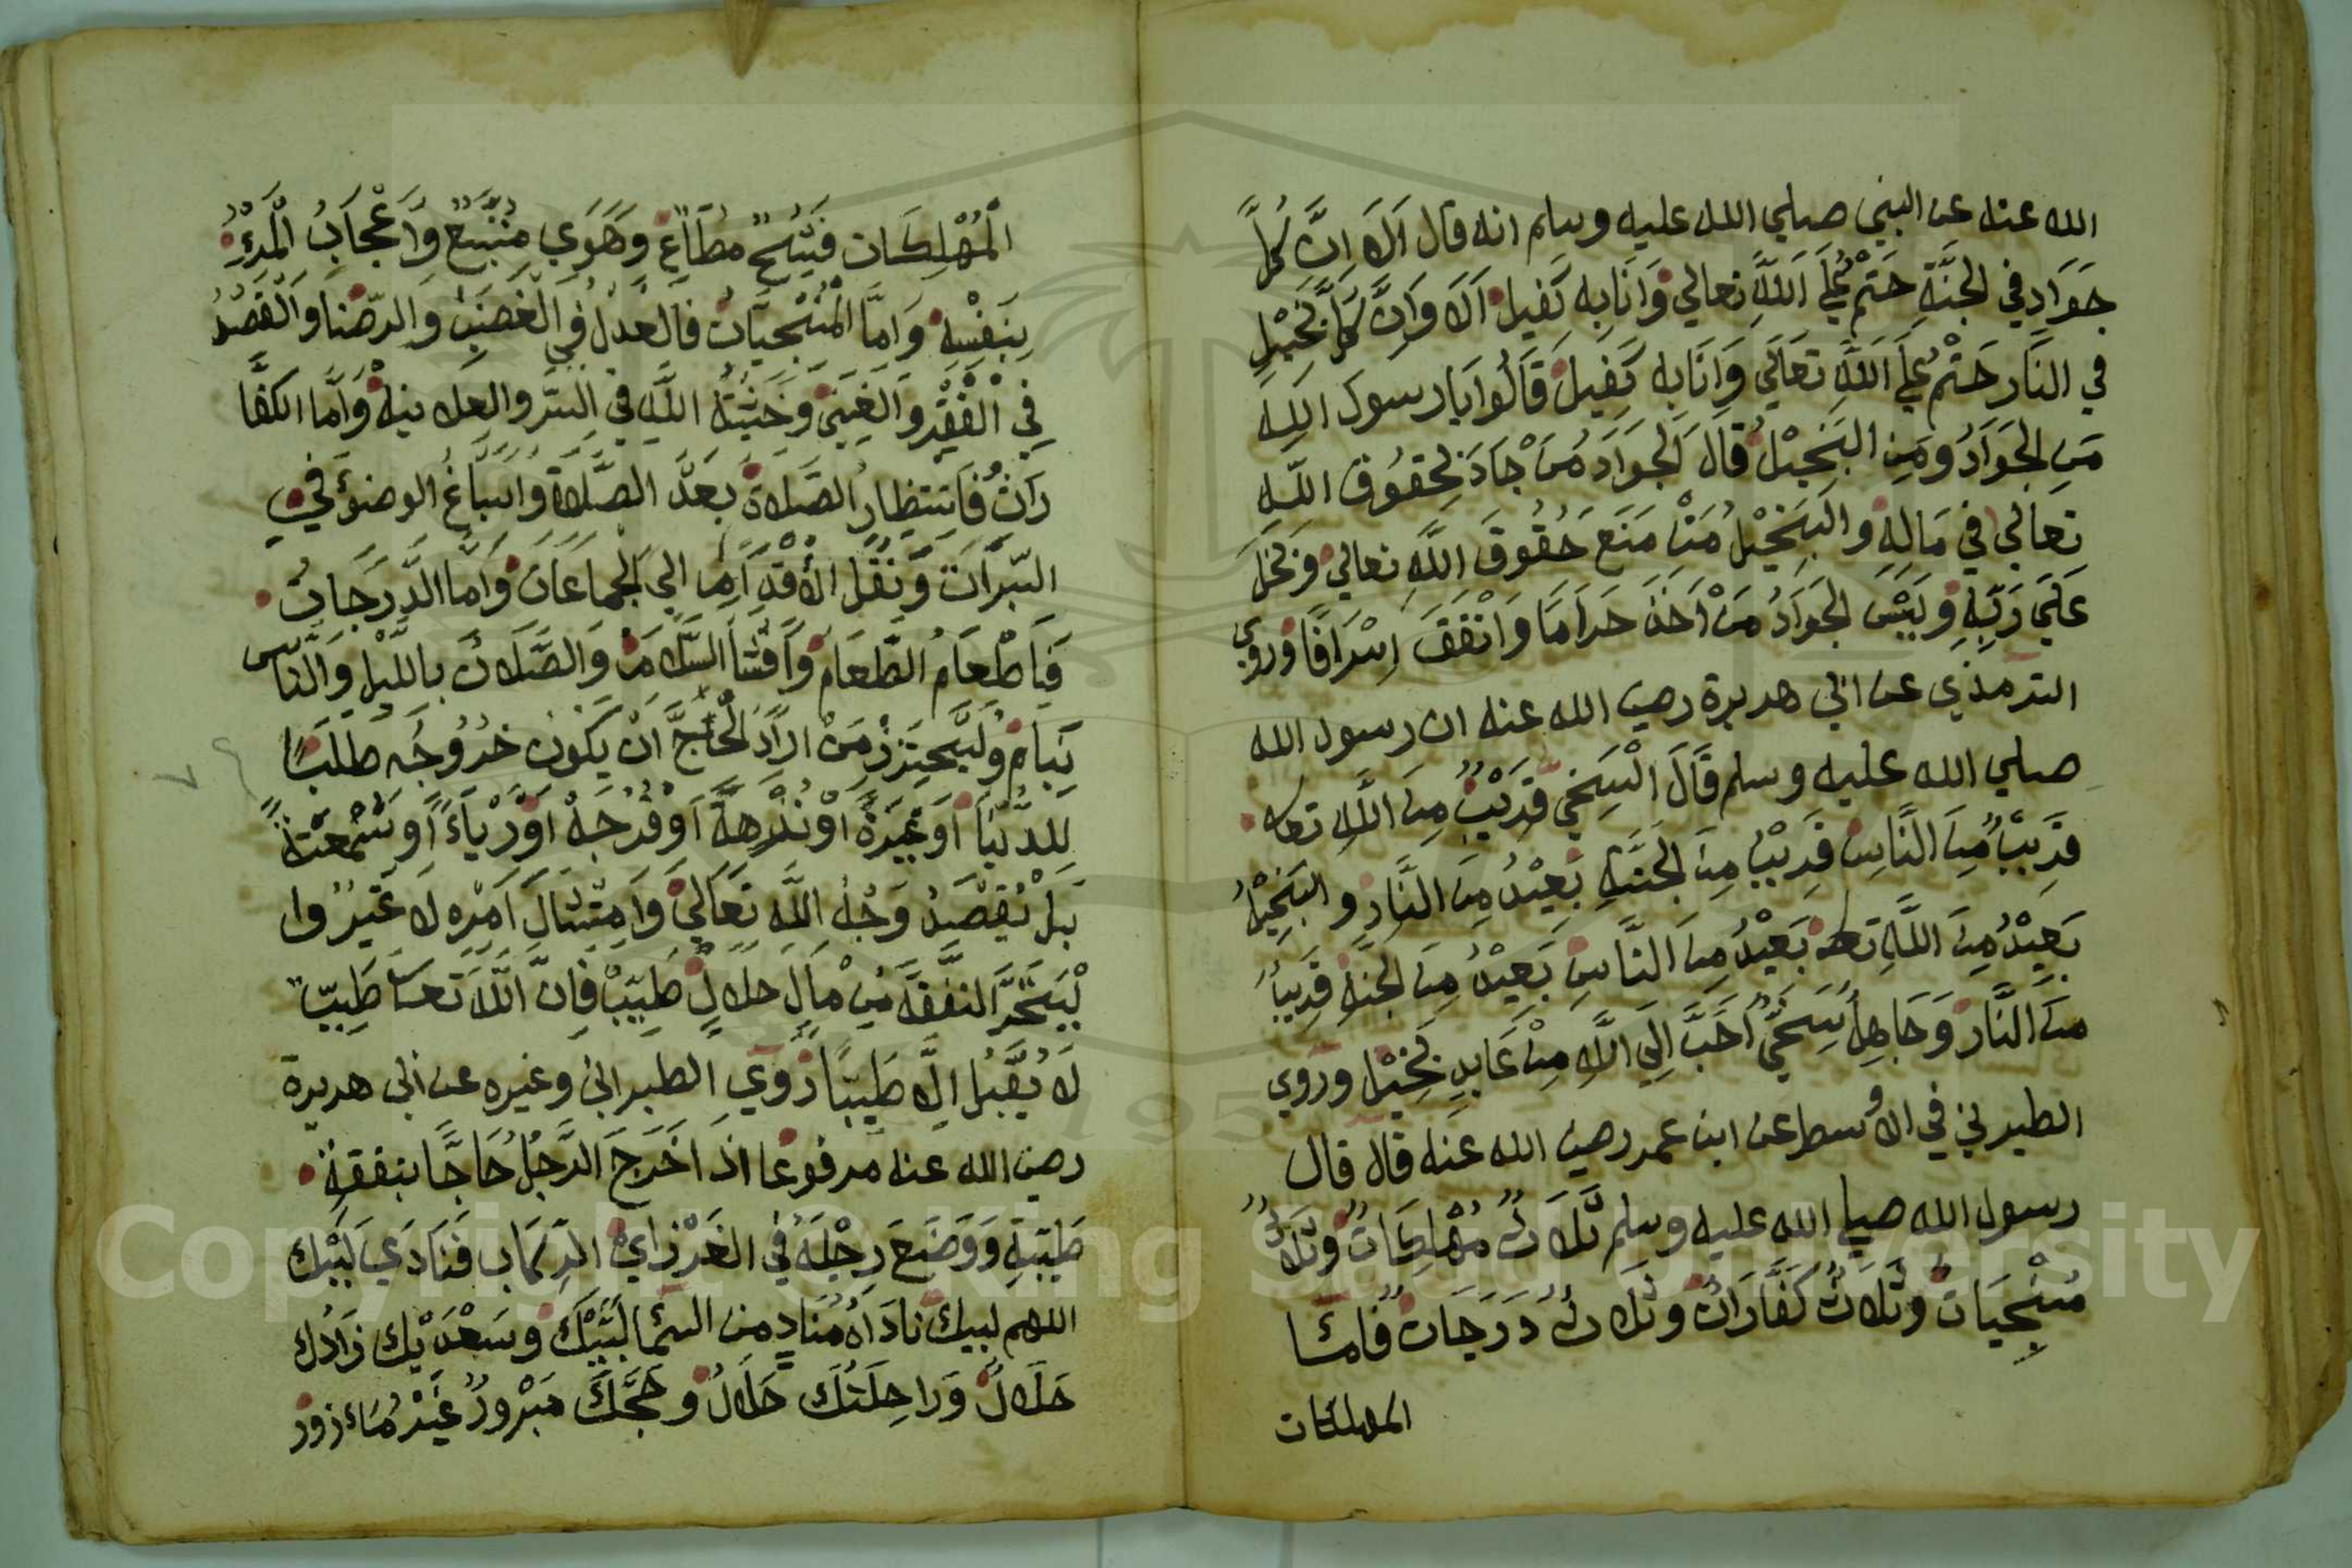 الله عنه عن النبي صلي الله عليه وسلم انه قال اَلاَ اِنَّ كُلَّ
جَوَادٍ في الجنَّةِ حَتْمٌ عَلَي اللهِ تعالي وَاَنَا بِه كَفيل اَلاَ وَاِنَّ كُلَّ بَخِيْلٍ
في النَّار حَتْمٌ عَلَي اللهِ تعَالَي وَاَنَا به كَفِيل قَالُوا يَا رسول اللهِ
مَنِ الجَوَادُ ومَنِ البَخِيْلُ قالَ الجوَادُ مَنْ جَادَ بِحقوُقِ اللهِ
تعالي في مَالِهِ والبَخِيْلُ مَنْ مَنَعَ حُقُوقَ اللهِ تعالي وبَخِلَ
عَلَي رَبِّهِ وليْسَ الجَوَادُ مَنْ اَخَذَ حَرَامًا وَاَنْفَقَ اِسْرَافًا وروي
الترمذي عن ابي هريرة رضي الله عنه ان رسول الله
صلي الله عليه وسلم قَالَ السَّخِيُّ قَرِيْبٌ مِنَ اللهِ تعه
قَرِيْبٌ مِنَ النَّاسِ قَرِيْبٌ مِنَ الجَنَّةِ بَعِيْدٌ مِنَ النَّارِ والبَخِيْلُ
بَعِيْدٌ مِنَ اللهِ تعه بَعِيْدٌ مِنَ النَّاسِ بَعِيْدٌ مِنَ الجنَّةِ قَرِيبٌ
منَ النَّارِ وَجَاهِلٌ سَخِيٌّ اَحَبُّ اِلَي اللهِ مِنْ عَابِدٍ بَخِيْلٍ وروي
الطبرني في الاوسط عن ابن عمر رضي الله عنه قال قال
رسول الله صلي الله عليه وسلم ثَلاَثٌ مُهْلِكَاتٌ وثَلاَثٌ
مُنْجِيَاتٌ وثَلاَثٌ كَفَّارَاتٌ وثَلاَثٌ دَرَجَاتٌ فَامَّا
المهلكات
المُهْلِكَات فَشُحٌّ مُطَاعٌ وَهَوًي مُتَّبَعٌ وَاِعْجَابُ المَرْءِ
بِنَفْسِهِ وَامَّا المُنْجِيَاتُ فَالعَدْلُ في الغَضَبِ والرِّضَا وَالقَصْدُ
فِي الفَقْرِ وَالغِنَي وَخَشْيَةُ اللهِ في السِّرِّ والعلانيةِ وَاَمَّا الكَفَّا
رَاتُ فَانتِظَارُ الصَّلاةِ بَعْدَ الصَّلاَةِ وَاسبَاغُ الوضوُءِ في
السَّبَرَاتِ وَنَقْلُ الاَقْدَامِ الي الجماعَات وَاَمَّا الدَّرَجَاتُ
فَاِطْعَامُ الطَّعَامِ وَاِفْشَا السَّلامِ وَالصَّلاتُ بِاللَّيْلِ وَالنَّاس
نِيَام وليَحتَرِزْ مَنْ اَرَادَ الحَجَّ اَنْ يَكُون خرُوُجُه طَلَبًا
لِلدُّنْيَا اَوْ غَيْرَةً اَوْ نُزْهَةً اَوْ فُرْجَةً اَوْ رِيَاءً اَو سُمْعَةً
بَلْ يُقْصَدُ وَجْهُ اللهِ تَعَالَي وَاِمتِثَالَ اَمْرِه لاَ غَيْرُ وا
لْيَتَحَرَّ النفَقَة مِنْ مَالٍ حَلاَلٍ طَيِّبٍ فَاِنَّ اللهَ تَعَالي طَيِّبٌ
لاَ يَقْبَلُ اِلاَّ طَيِّبًا رَوَي الطبراني وغيره عن ابي هريرة
رضي الله عنه مرفوعًا اذَا خَرَجَ الرَّجُلُ حَاجًّا بنفقةٍ
طَيِّبَةٍ وَوَضَعَ رِجْلَهُ في الغَرْزِ اي الرِّكَاب فَنَادَي لَبَّيْكَ
اللهم لبيك نادَاهُ مُنَادٍ مِن السَّما لَبَّيْكَ وسَعْدَيْك زَادُك
حَلاَلٌ وَراحِلَتُكَ حَلاَلٌ وحَجُّكَ مَبْرُورٌ غَيْرُ مَاْزور
Copyright © King Saud University
195